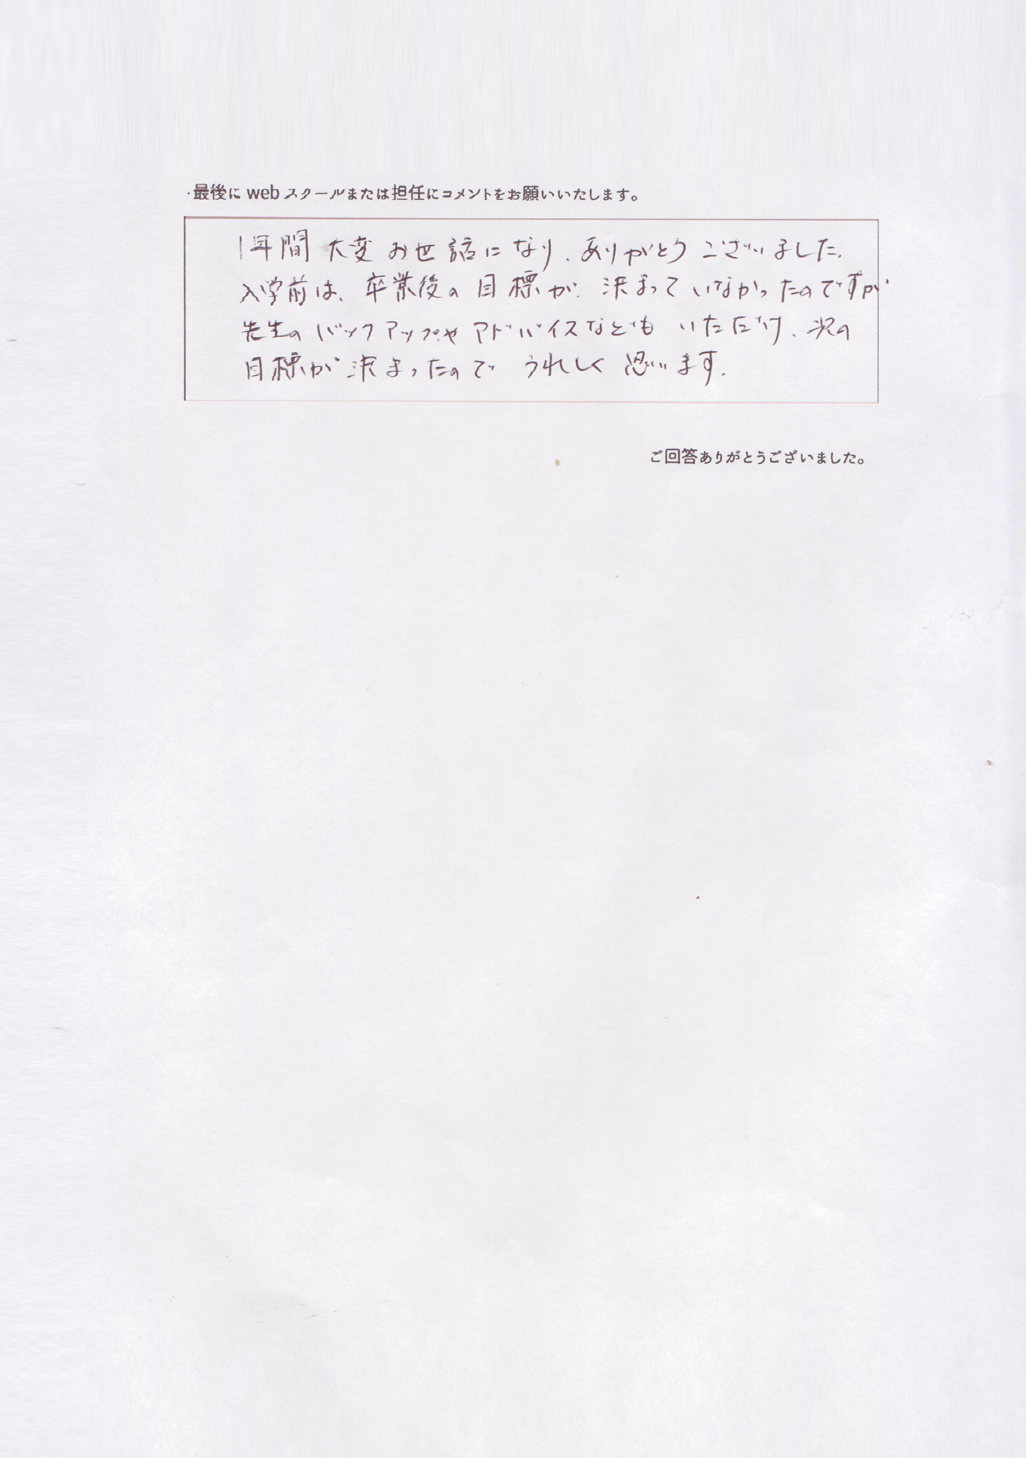 ・最後に web スクールまたは担任にコメントをお願いいたします。
1年間 大変 お世話になり、ありがとう ございました。
入学前は、卒業後の目標が、決まって いなかったのですが
先生の バックアップや アドバイスなども いただけ、次の
目標が 決まったので うれしく 思います。
ご回答ありがとうございました。